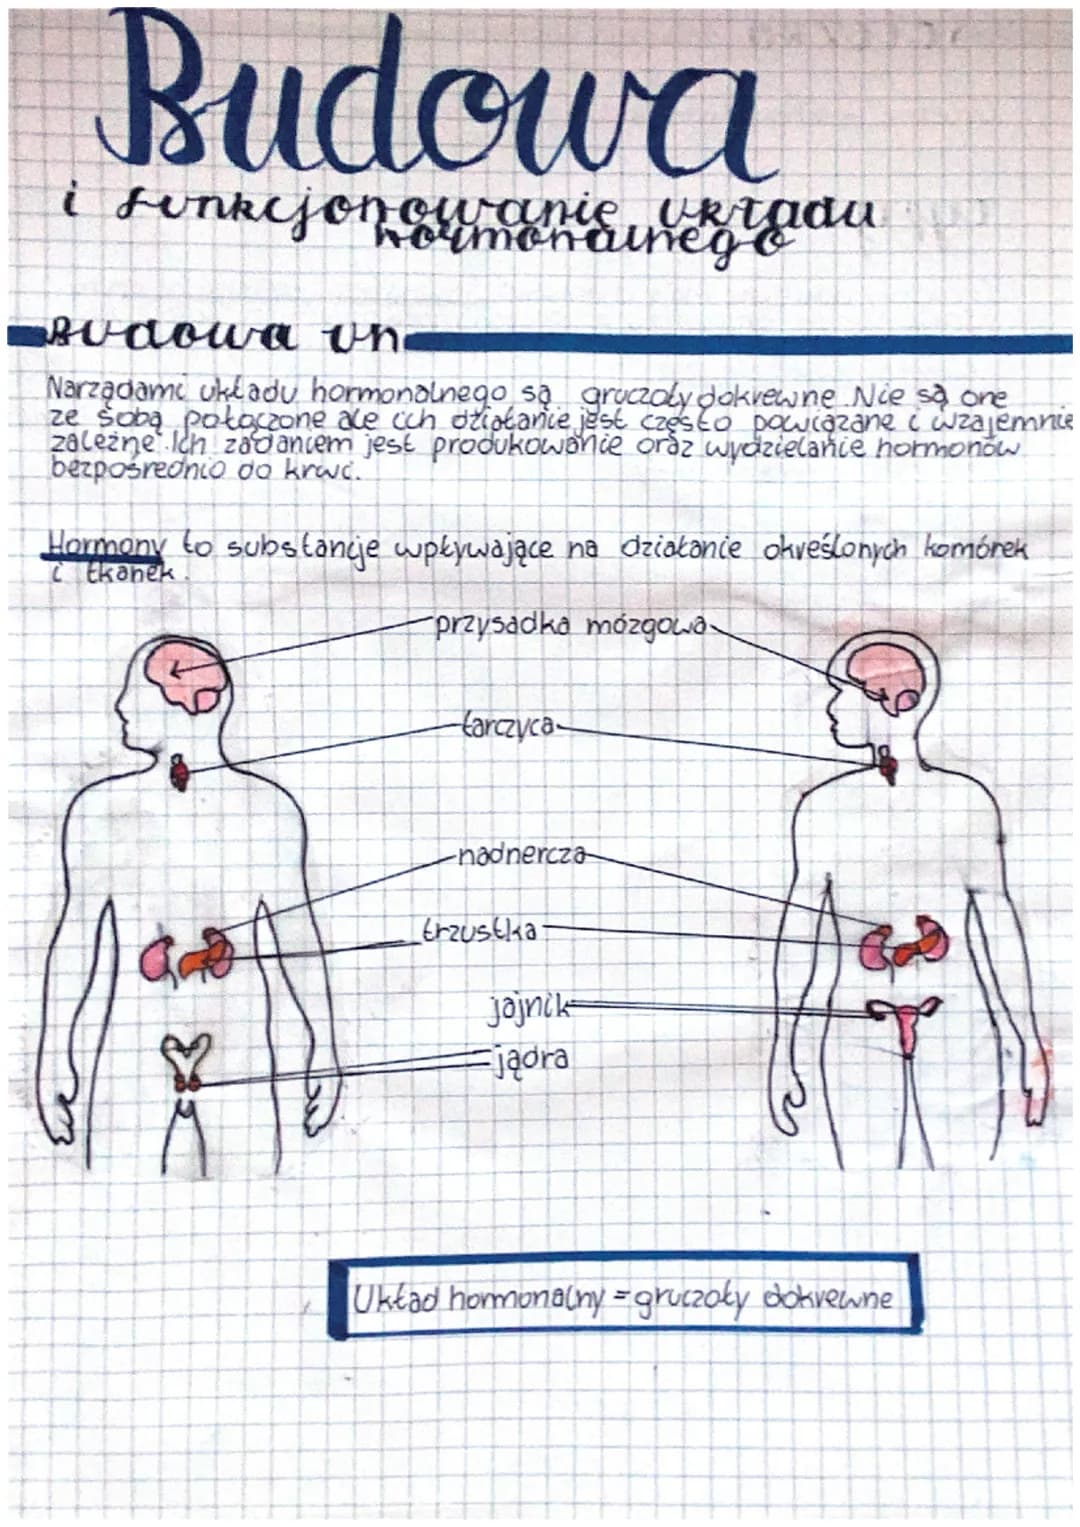 Budowa
i funkcjonowanie układu
hormonalnego
Budowa un
Narządami układu hormonalnego są gruczoły dokrewne. Nie są one
ze sobą połączone ale ich działanie jest często powiązane i wzajemnie
zależne. Ich zadaniem jest produkowanie oraz wydzielanie hormonów
bezpośrednio do krwi.
Hormony to substancje wpływające na działanie określonych komórek
i tkanek.
przysadka mózgowa
tarczyca
nadnercza
trzustka
jajnik
jądra
Układ hormonalny = gruczoły dokrewne